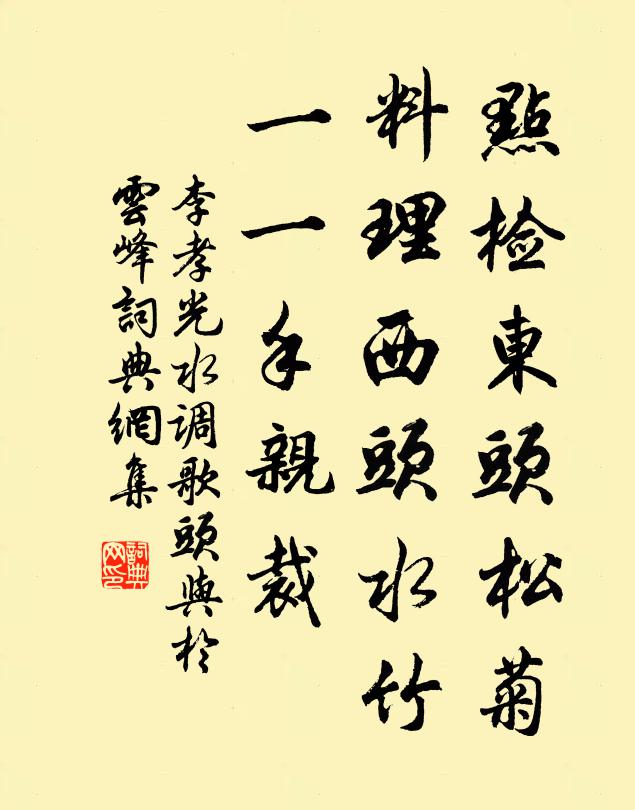 點檢東頭松菊
料理西頭水竹
一一手親裁
李孝光水调歌頭與於
雲峰詞典網集
詞典网印